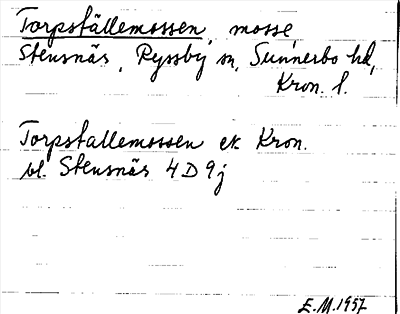 Torpställemossen, mosse,
Stensnäs, Ryssby sn, Sunnerbo hd,
Kron. l.
Torpstallemossen ek Kron.
bl. Stensnäs 4 D 9 j
E.M. 1957